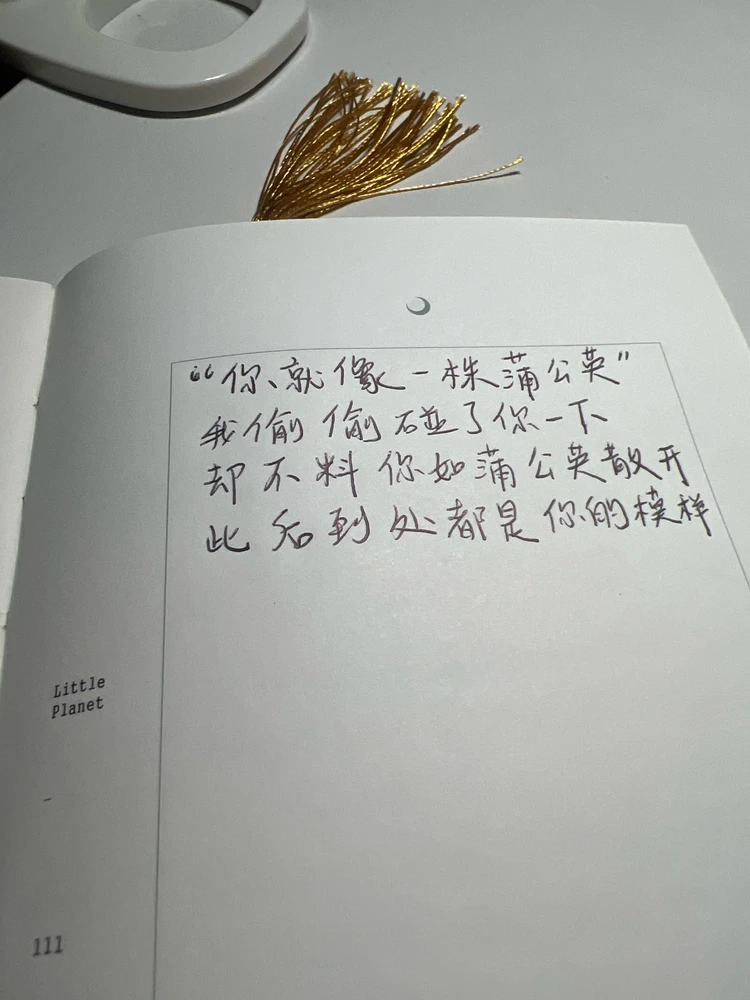 “你就像一株蒲公英”
我偷偷碰了你一下
却不料你如蒲公英散开
此后到处都是你的模样
Little
Planet
111